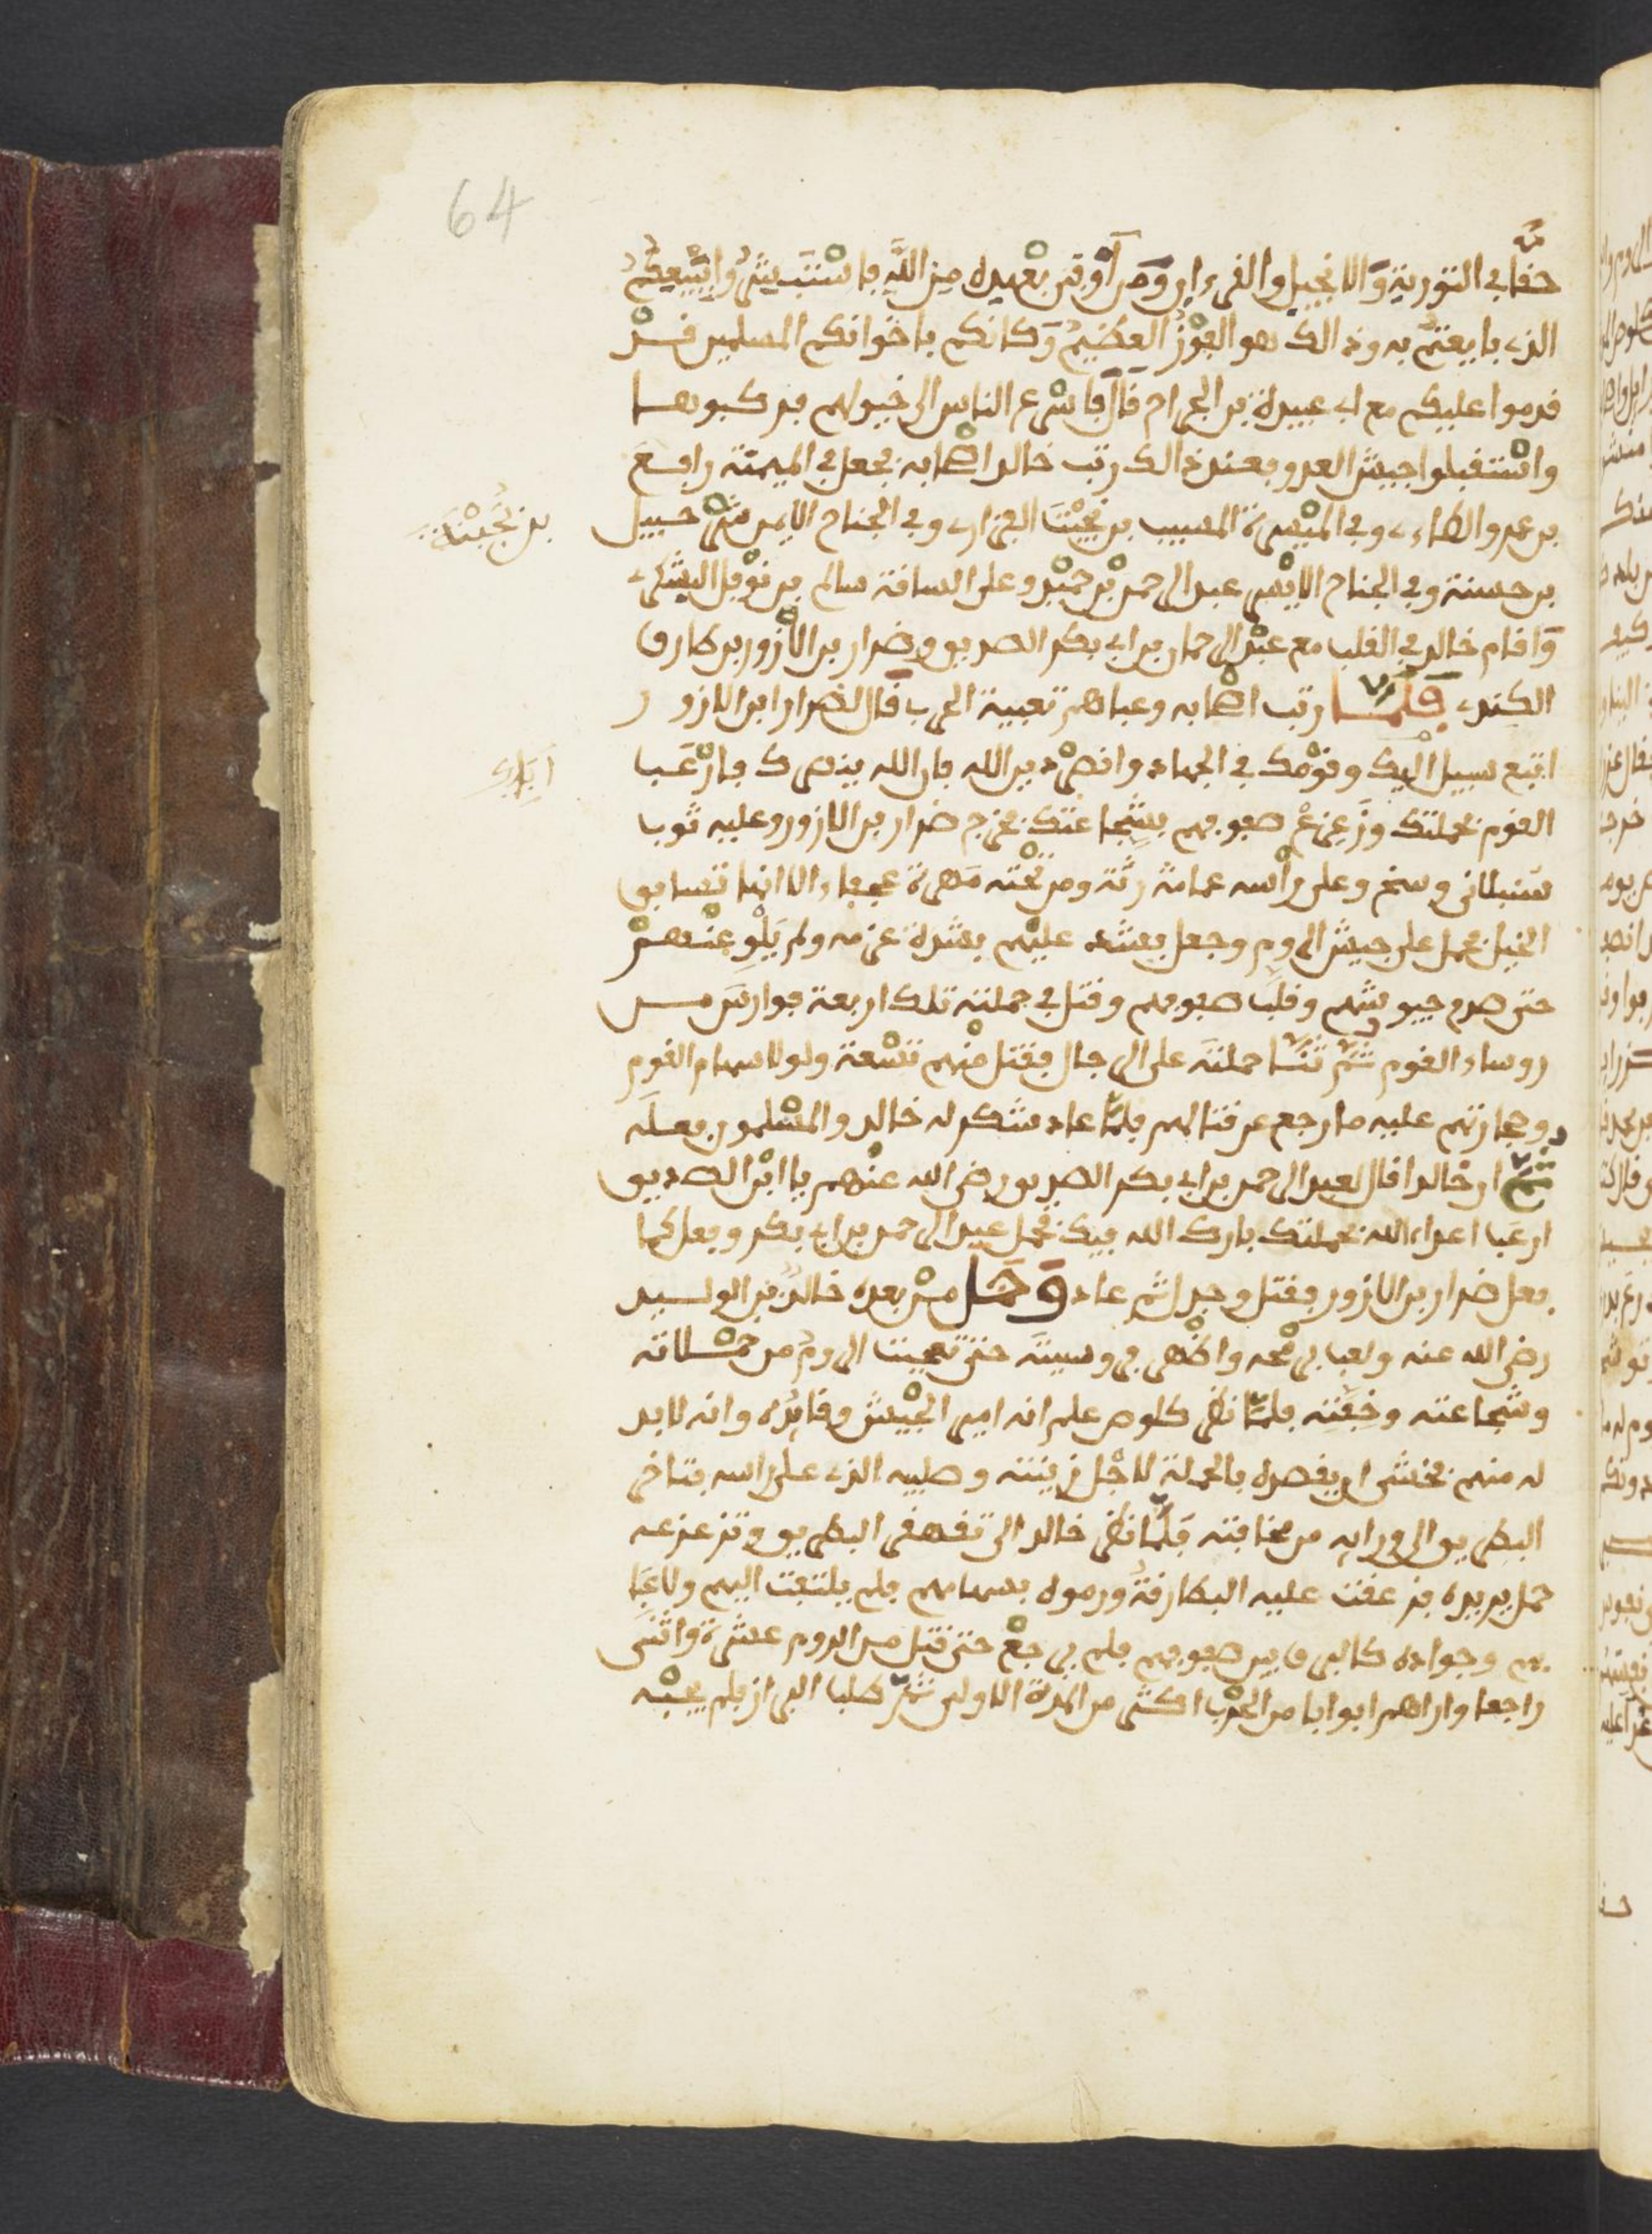 64
حقا في التورية والانجيل والقرءان ومن أوفى بعهده من الله فاستبشروا ببيعكم
الذي بايعتم به وذالك هو الفوز العظيم وكانكم باخوانكم المسلمين قد
قدموا عليكم مع ابي عبيدة بن الجراح قال فاسرع الناس الى خيولهم فركبوها
واستقبلوا جيش العدو فعند ذالك رتب خالد اصحابه فجعل في الميمنة رافع
بن عمرو الطاءي وفي الميسرة المسيب بن نجيبة الفزاري وفي الجناح الايمن شرحبيل
بن نجيبة
بن حسنة وفي الجناح الايسر عبد الرحمن بن حميد وعلى الساقة سالم بن نوفل اليشكري
واقام خالد في القلب مع عبد الرحمان بن ابي بكر الصديق وضرار بن الازور بن طارق
الكندي فلما رتب اصحابه وعباهم تعبية الحرب قال لضرار ابن الازور
اتبع سبيل ابيك وقومك في الجهاد وانصر دين الله فان الله ينصرك فارعب
ابيك
القوم بحملتك وزعزع صفوفهم بشجاعتك فخرج ضرار بن الازور وعليه ثوب
سنبلاني وسخ وعلى رأسه عمامة رثة ومن تحته مهرة عجفاء الا انها تسابق
الخيل فحمل على جيش الروم وجعل يشد عليهم بشدة عزمه ولم يلو عنهم
حتى صدم جيوشهم وقلب صفوفهم وقتل في حملته تلك اربعة فوارس من
روساء القوم ثم ثنا حملته على الرجال فقتل منهم تسعة ولولا سهام القوم
وحجارتهم عليه ما رجع عن قتالهم فلما عاد شكر له خالد والمسلمون فعله
ثم ان خالدا قال لعبد الرحمن بن ابي بكر الصديق رضي الله عنهم يا ابن الصديق
ارعب اعداء الله بحملتك بارك الله فيك فحمل عبد الرحمن بن ابي بكر وفعل كما
فعل ضرار بن الازور فقتل وجدل ثم عاد وحمل من بعده خالد بن الوليد
رضي الله عنه ولعب برمحه واظهر فروسيته حتى تعجبت الروم من حملاته
وشجاعته وخفته فلما نظر كلوص علم انه امير الجيش وقايده وانه لا بد
له منهم فخشى ان يقصده بالحملة لاجل زينته وصليبه الذي على راسه فتاخر
البطريق الى ورايه من مخافته فلما نظر خالد الى تقهقر البطريق وتزعزعه
حمل يريده فزعقت عليه البطارقة ورموه بسهامهم فلم يلتفت اليهم ولا عبا
بهم وجواده كالبرق بين صفوفهم فلم يرجع حتى قتل من الروم عشرة واثنى
راجعا واراهم ابوابا من الحرب اكثر من المرة الاولى ثم طلب البراز فلم يجبه